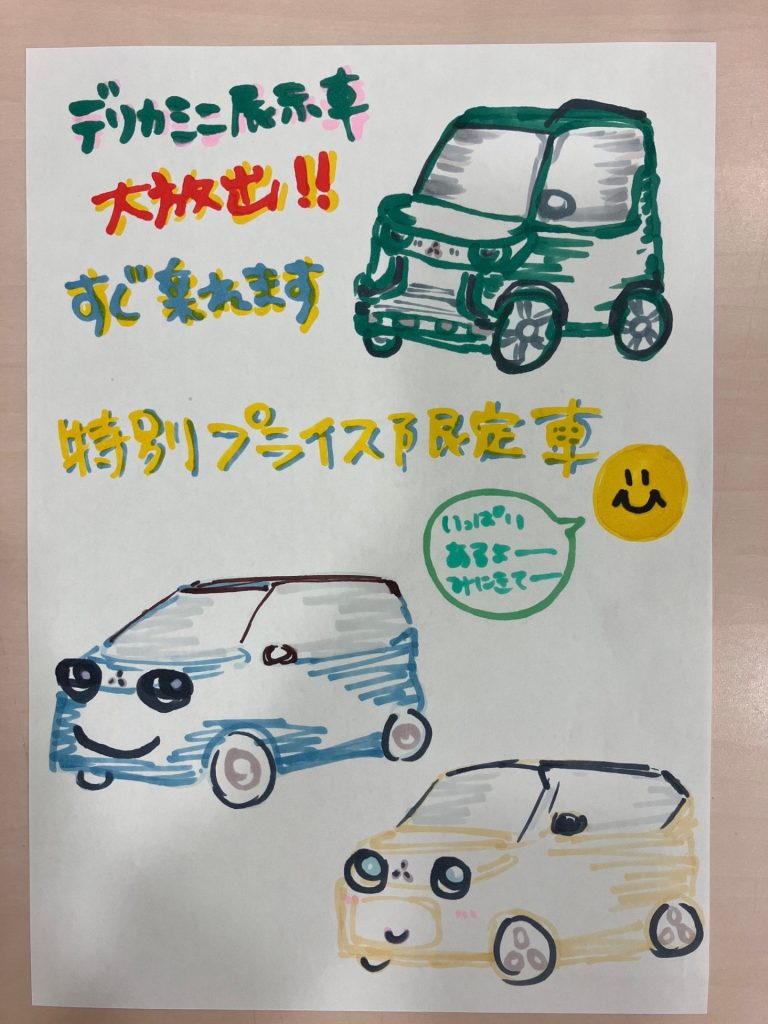 デリカミニ展示車
大放出!!
すぐ乗れます
特別プライス限定車
いっぱい
あるよー
みにきてー